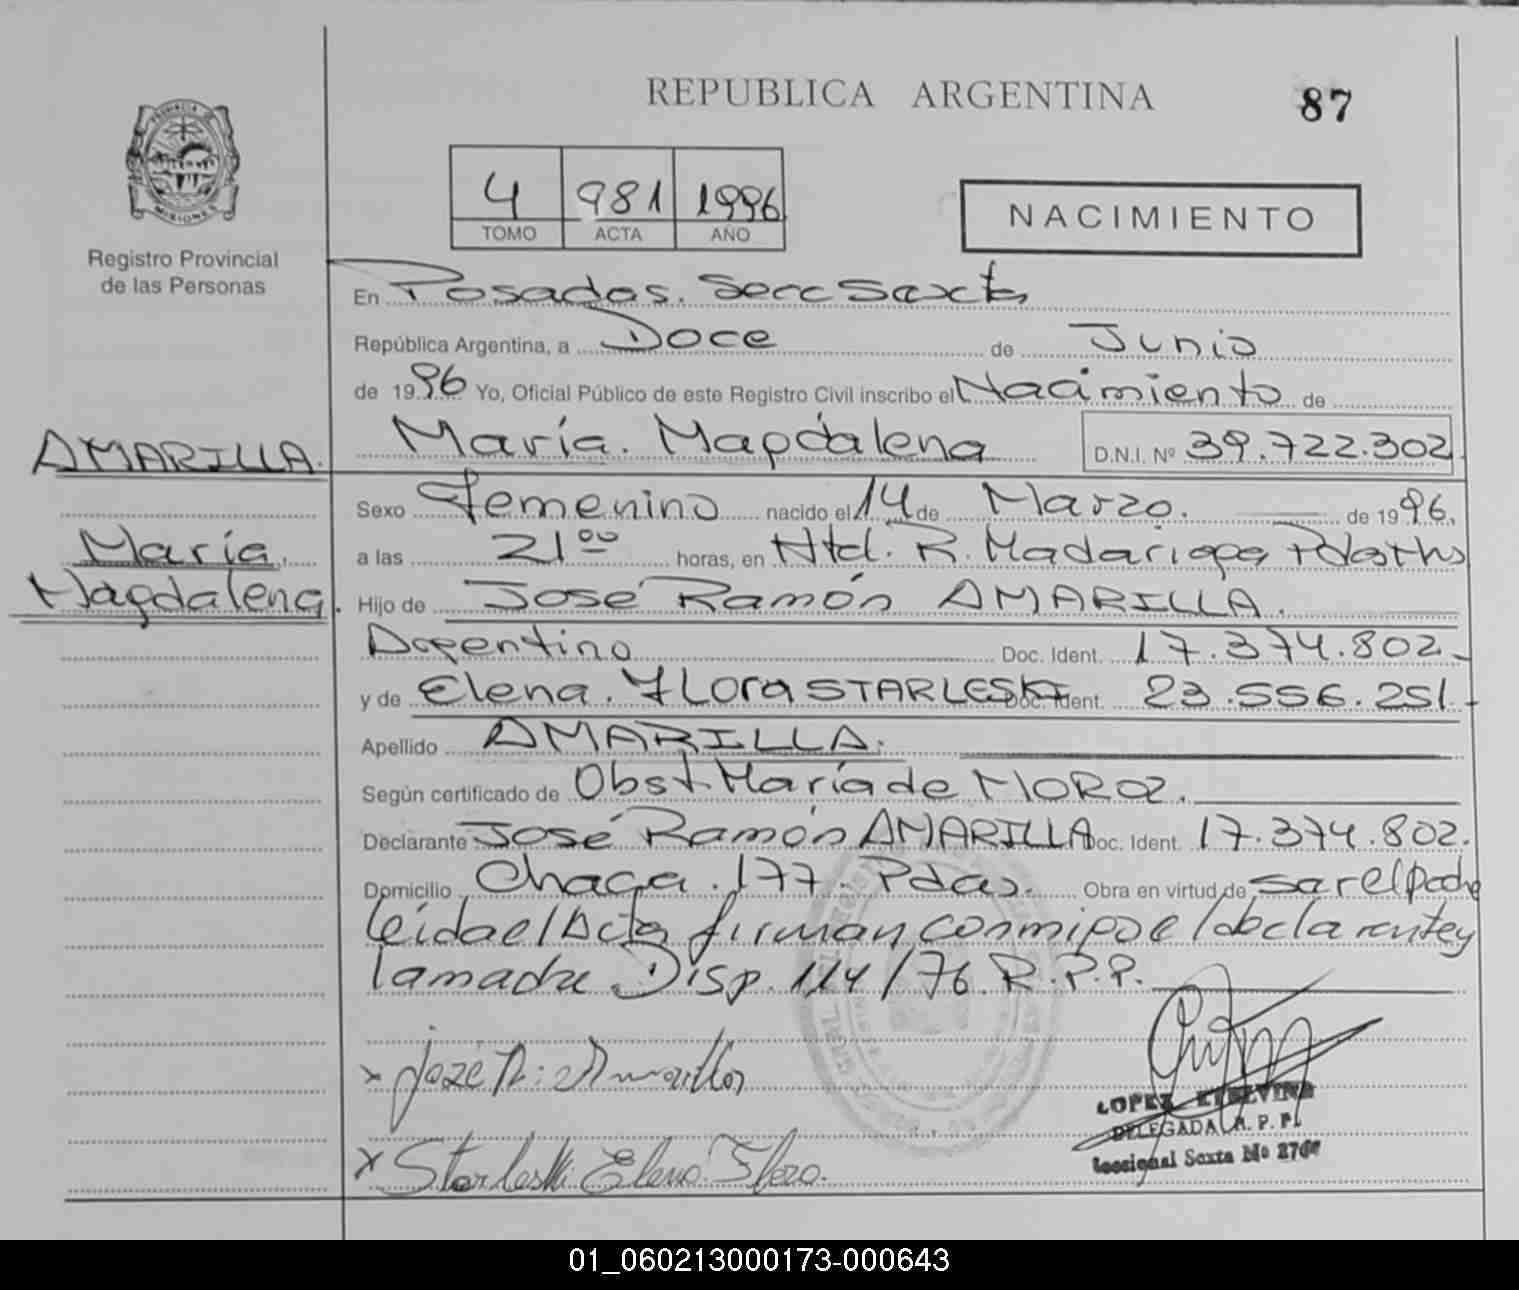 REPUBLICA ARGENTINA
87
PROVINCIA DE
MISIONES
Registro Provincial
de las Personas
4 981 1996
TOMO ACTA AÑO
NACIMIENTO
En Posadas. Secc Sexta
República Argentina, a Doce de Junio
de 1996 Yo, Oficial Público de este Registro Civil inscribo el Nacimiento de
María. Magdalena D.N.I. Nº 39.722.302
AMARILLA.
María.
Magdalena.
Sexo Femenino nacido el 14 de Marzo. de 1996.
a las 21⁰⁰ horas, en Htal. R. Madariaga Pdas
Hijo de José Ramón AMARILLA.
Argentino Doc. Ident. 17.374.802
y de Elena. Flora STARLESKI Doc. Ident. 23.556.251
Apellido AMARILLA.
Según certificado de Obst. María de MOROZ.
Declarante José Ramón AMARILLA Doc. Ident. 17.374.802.
Domicilio Chaca. 177. Pdas. Obra en virtud de ser el padre
leída el Acta firman conmigo el declarante y
la madre Disp. 114/76. R.P.P.
x José R. Amarilla
x Starleski Elena Flora.
LOPEZ ETELVINA
DELEGADA R. P. P.
Seccional Sexta Nº
01_060213000173-000643